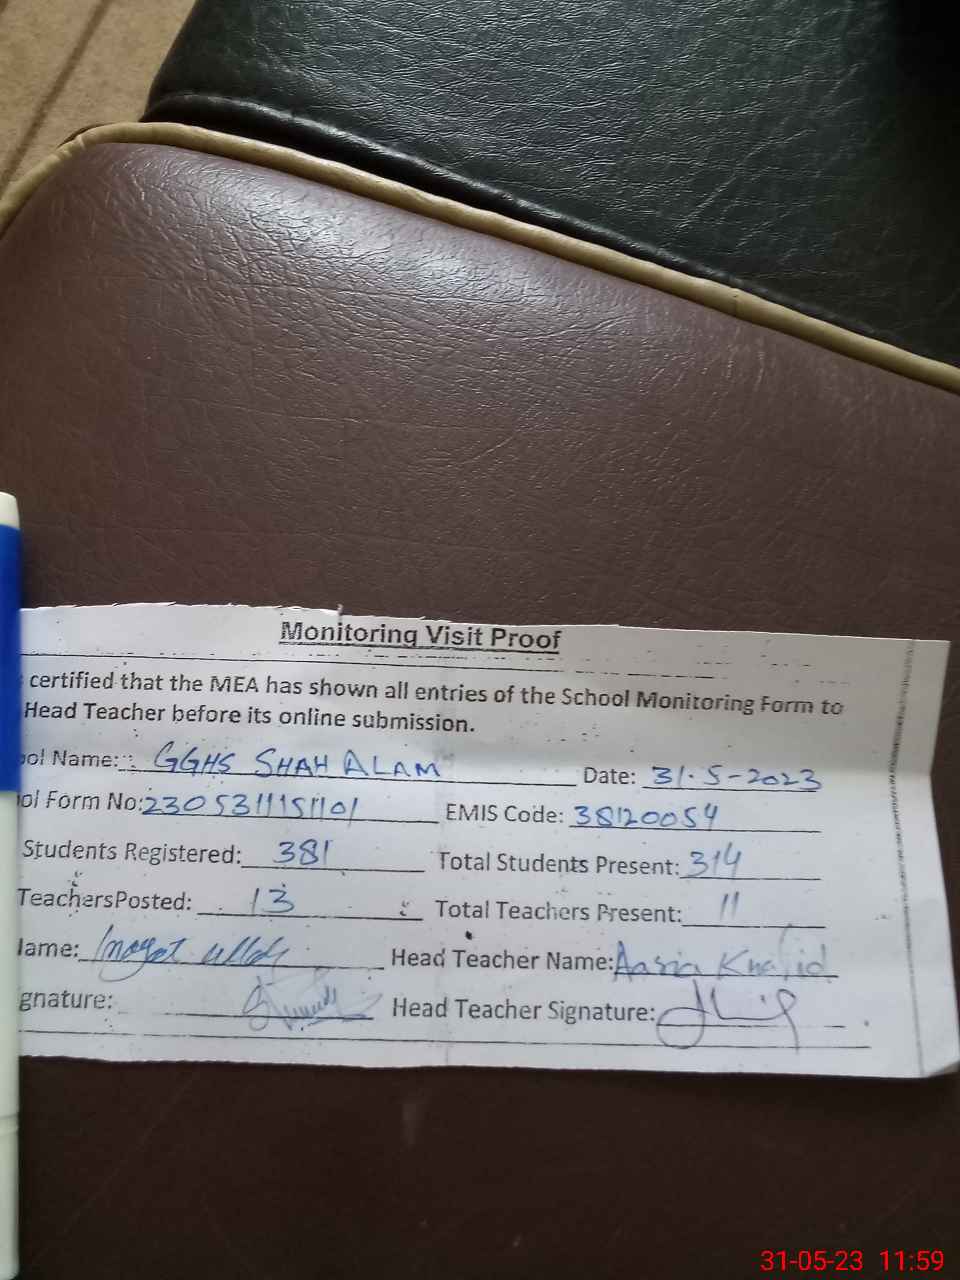 Monitoring Visit Proof
certified that the MEA has shown all entries of the School Monitoring Form to
Head Teacher before its online submission.
ol Name: GGHS SHAH ALAM Date: 31-5-2023
ol Form No: EMIS Code: 38120054
Students Registered: 381 Total Students Present: 314
TeachersPosted: 13 Total Teachers Present: 11
lame: Inayat ullah Head Teacher Name: Aasia Khalid
gnature: Head Teacher Signature:
31-05-23 11:59